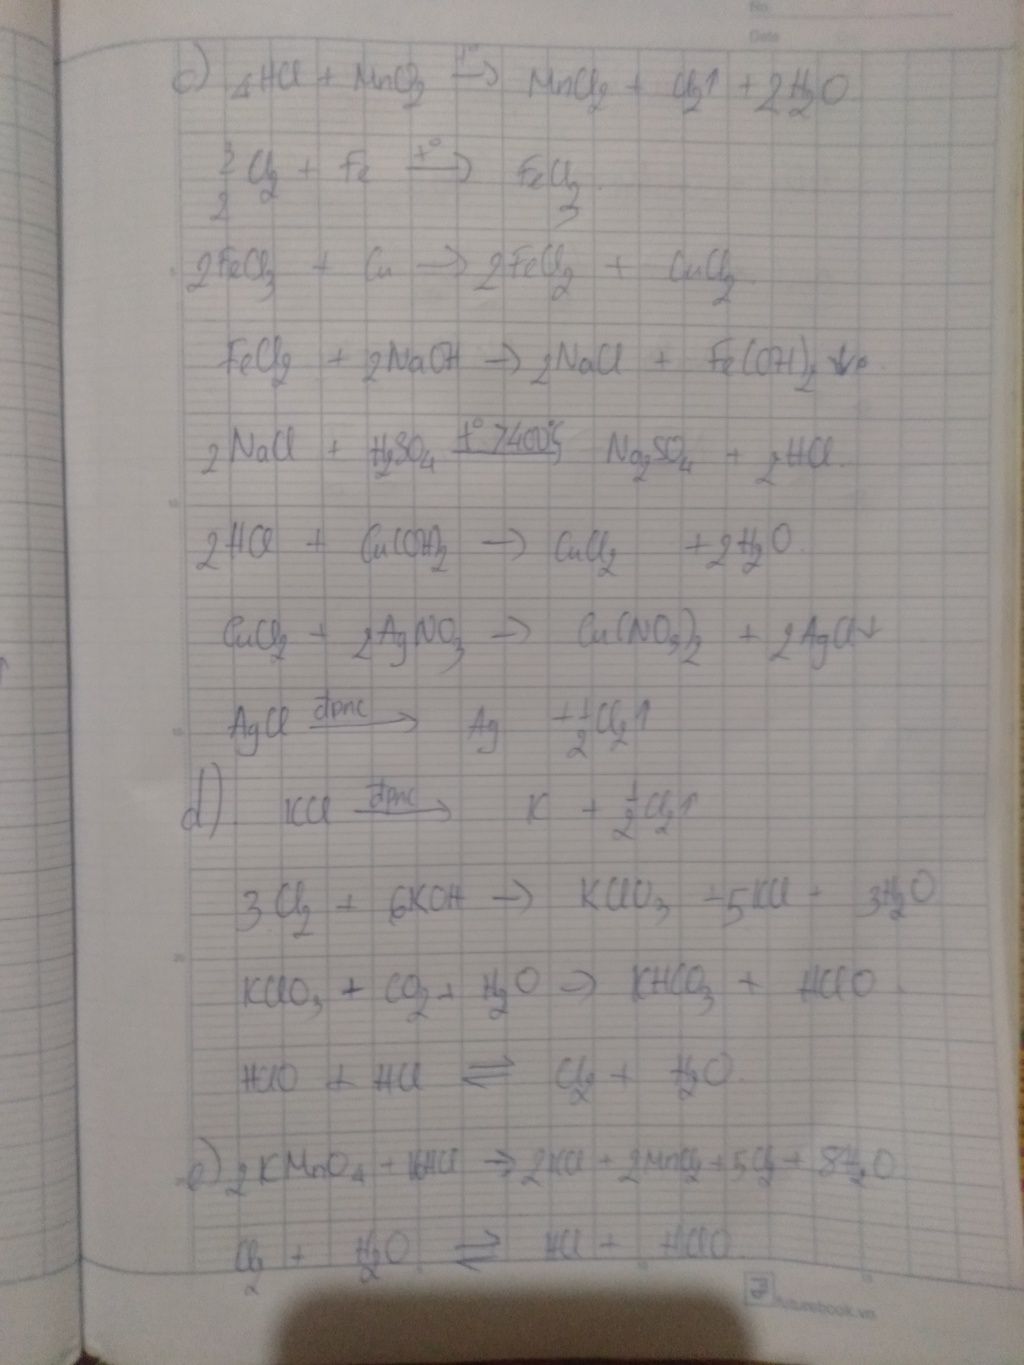 No.
Date
c) 4HCl + MnO₂ —t°→ MnCl₂ + Cl₂↑ + 2H₂O
3/2 Cl₂ + Fe —t°→ FeCl₃.
2FeCl₃ + Cu → 2FeCl₂ + CuCl₂
FeCl₂ + 2NaOH → 2NaCl + Fe(OH)₂ ↓
2NaCl + H₂SO₄ —t° >400°C→ Na₂SO₄ + 2HCl.
2HCl + Cu(OH)₂ → CuCl₂ + 2H₂O.
CuCl₂ + 2AgNO₃ → Cu(NO₃)₂ + 2AgCl↓
AgCl —đpnc→ Ag + 1/2 Cl₂↑
d) KCl —đpnc→ K + 1/2 Cl₂↑
3Cl₂ + 6KOH → KClO₃ + 5KCl + 3H₂O
KClO₃ + CO₂ + H₂O → KHCO₃ + HClO.
HClO + HCl ⇌ Cl₂ + H₂O.
e) 2KMnO₄ + 16HCl → 2KCl + 2MnCl₂ + 5Cl₂ + 8H₂O
Cl₂ + H₂O ⇌ HCl + HClO.